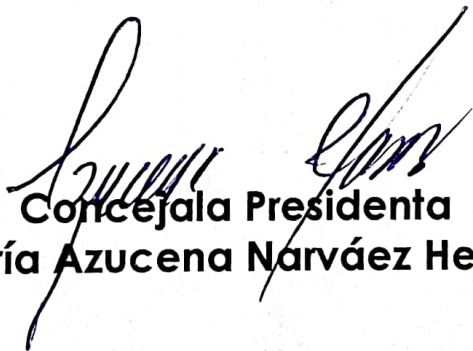 Concejala Presidenta
ía Azucena Narváez He